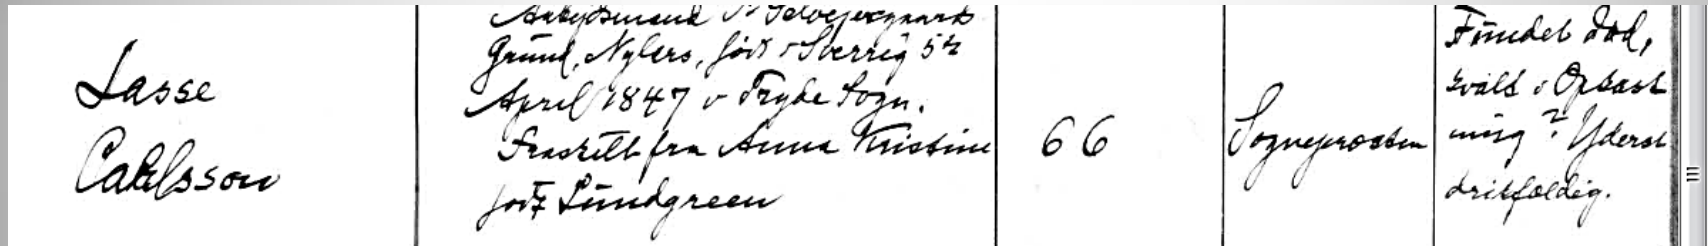 Lasse
Carlsson
Arbejdsmand v Selvejergaards
Grund, Nylars, født i Sverrig 5te
April 1847 i Tryde Sogn.
Fraskilt fra Anna Kristine
født Lundgreen
66
Sogneprosten
Fundet død,
kvalt i Opkast
ning? Yderst
drikfældig.